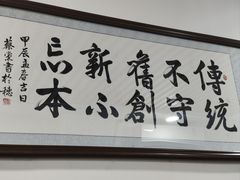 傳統
不守
舊創
新不
忘本
甲辰孟春吉日
書於穗